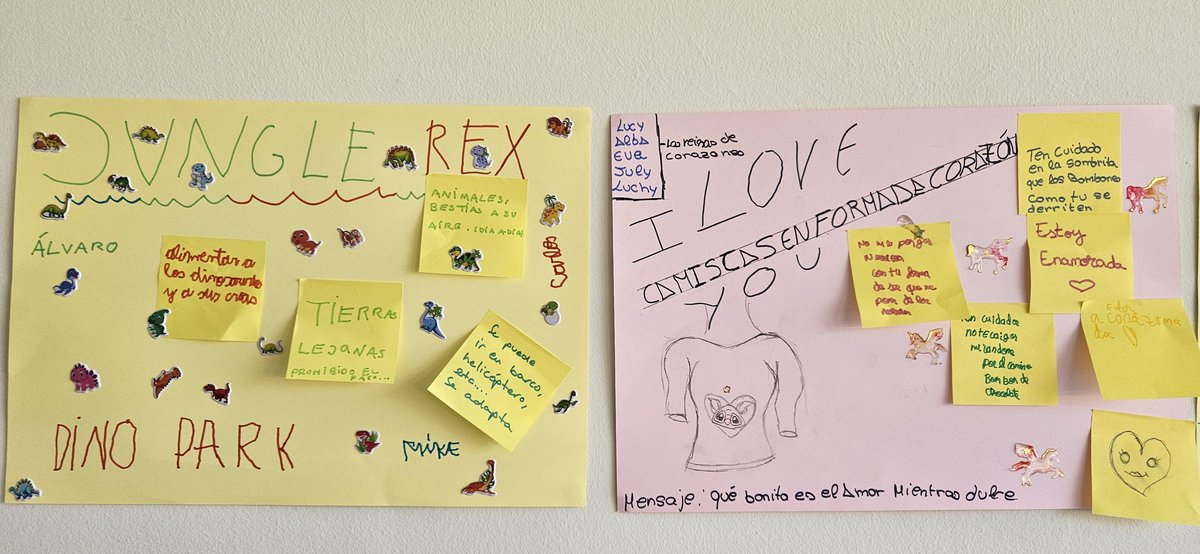 JUNGLE REX
ANIMALES,
BESTIAS A SU
AIRE. (DIA A DIA)
ÁLVARO
alimentar a
los dinosaurios
y a sus crias
Carlos
TIERRAS
LEJANAS
PROHIBIDO EL
PASO...
Se puede
ir en barco,
helicóptero,
etc...
Se adapta
DINO PARK
MIKE
Lucy
Alba
Eva
July
Luchy
Las reinas de
corazones
I LOVE
YOU
CAMISETAS EN FORMA DA CORAZÓN
Ten cuidado
en la sombrita
que los Bombones
como tu se
derriten
Estoy
Enamorada
No me ponga
nerviosa
con tu forma
de ser que me
Ten cuidado
no te caigas
mirandome
por el camino
Bombon de
chocolate
Estoy
acorazona
da
Mensaje: qué bonito es el amor mientras dure